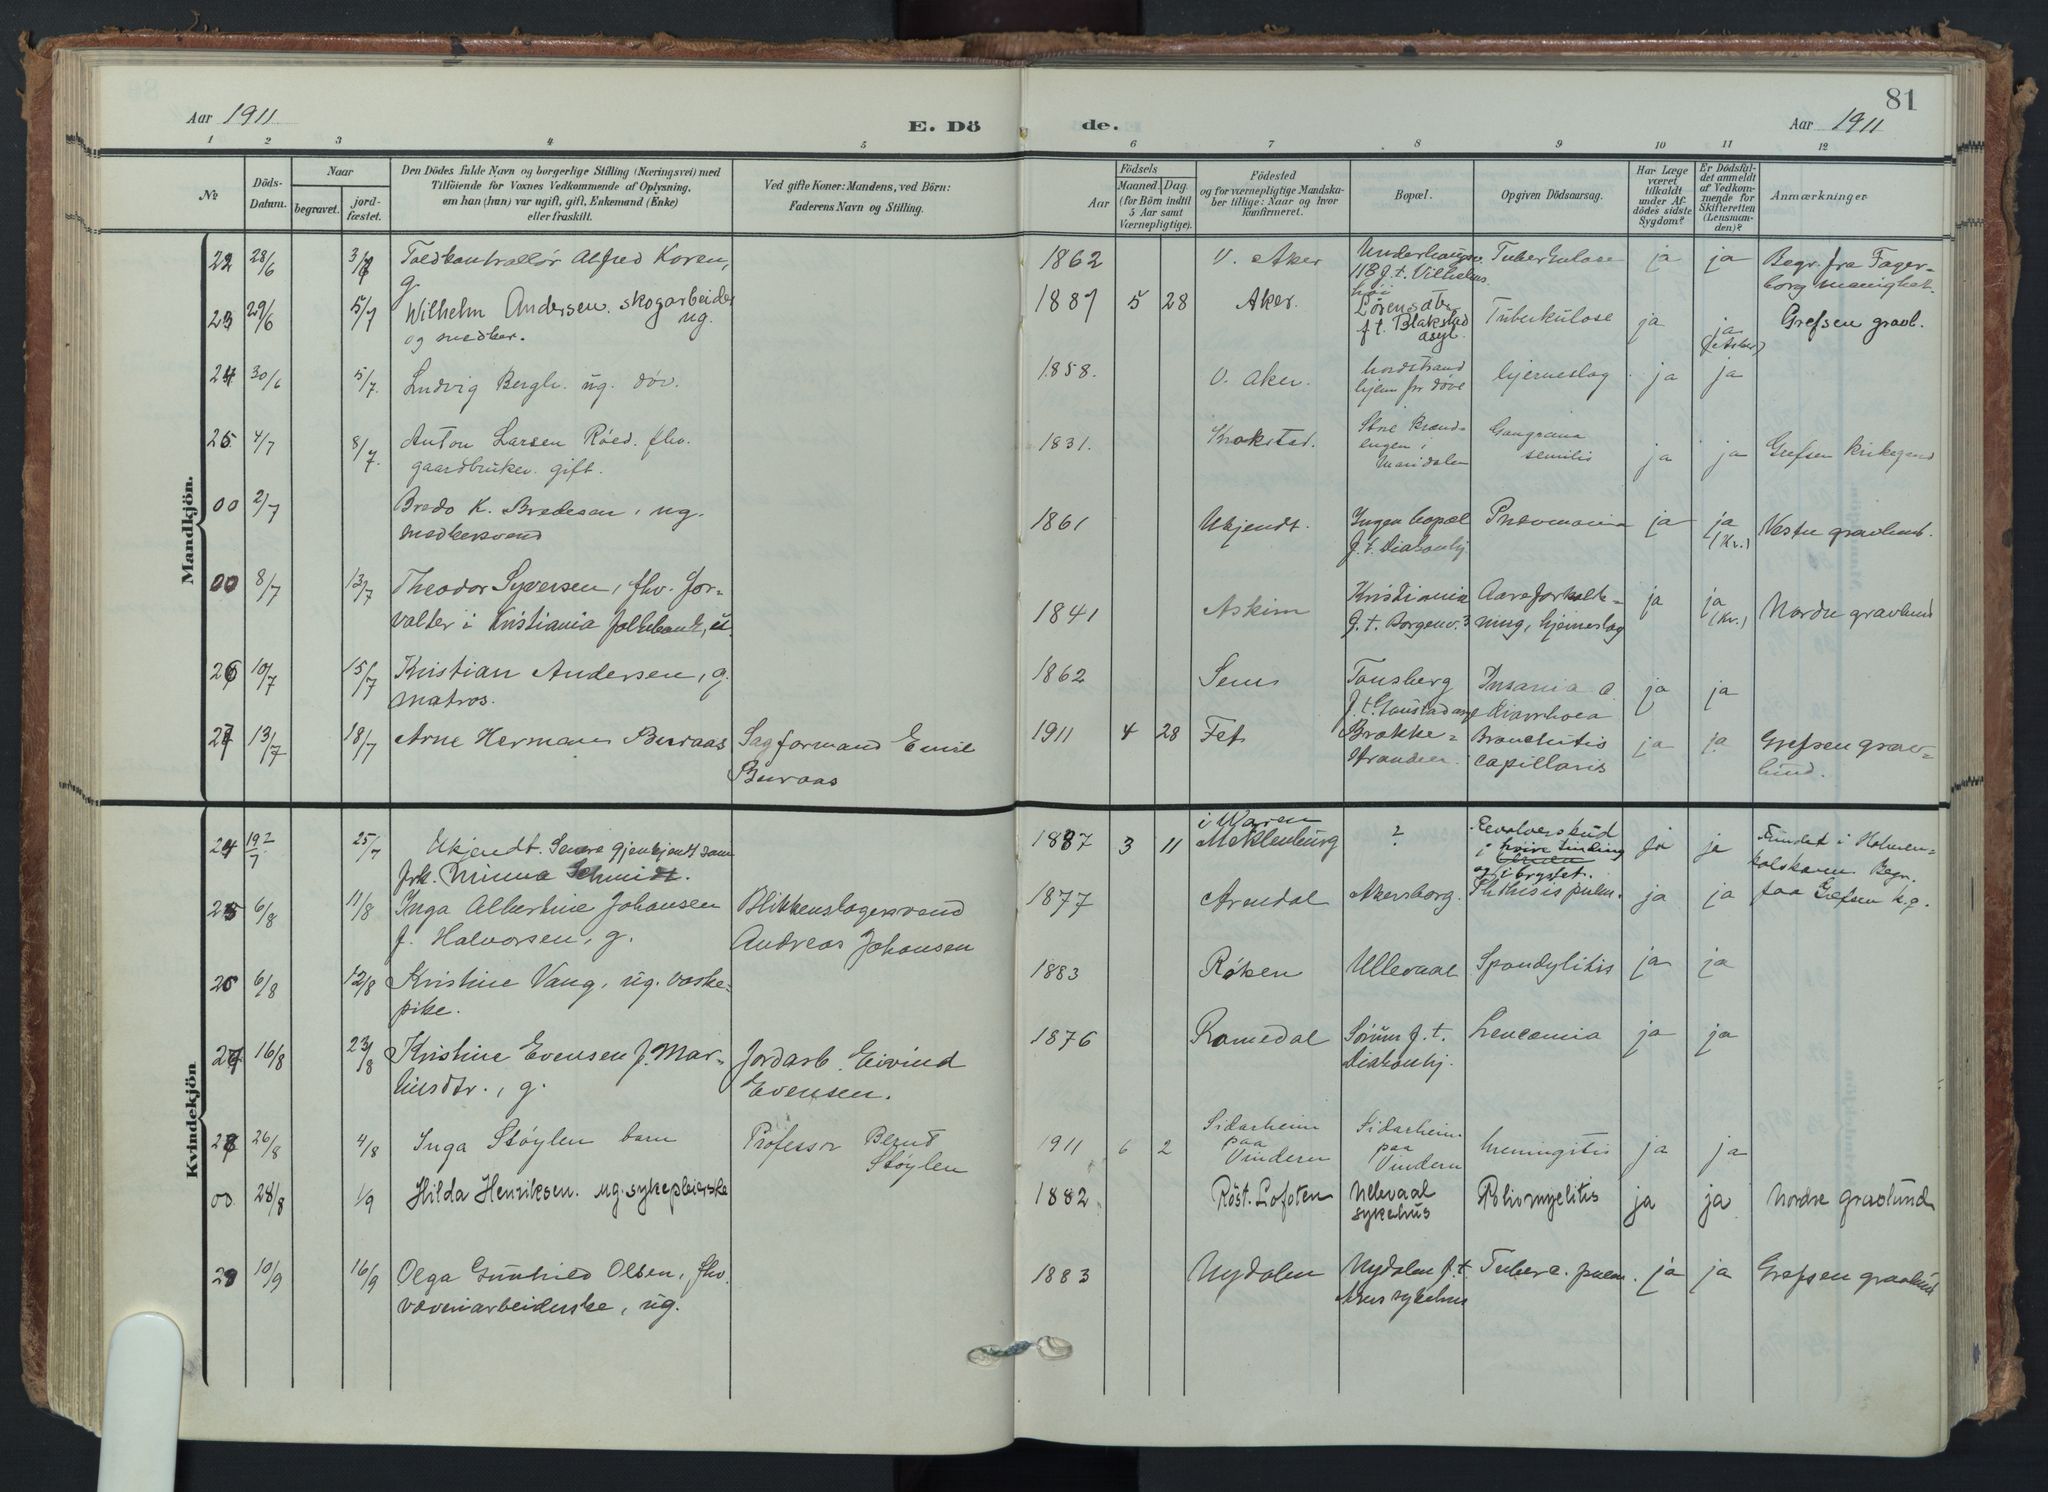 81
Aar 1911
E. Dö
de.
Aar 1911
1 2 3 4 5 6 7 8 9 10 11 12
№
Döds-
Datum.
Naar
begravet.
jord-
fæstet.
Den Dödes fulde Navn og borgerlige Stilling (Næringsvei) med
Tilföiende for Voxnes Vedkommende af Oplysning,
om han (hun) var ugift, gift, Enkemand (Enke)
eller fraskilt.
Ved gifte Koner: Mandens, ved Börn:
Faderens Navn og Stilling.
Födsels
Aar
Maaned.
Dag.
(for Börn indtil
5 Aar samt
Værnepligtige).
Födested
og for værnepligtige Mandska-
ber tillige: Naar og hvor
konfirmeret.
Bopæl.
Opgiven Dödsaarsag.
Har Læge
været
tilkaldt
under Af-
dödes sidste
Sygdom?
Er Dödsfal-
det anmeldt
af Vedkom-
mende for
Skifteretten
(Lensman-
den)?
Anmærkninger
Mandkjön.
22 28/6 3/7 Toldkontrollör Alfred Koren, 1862 V. Aker Underhaugsv. Tuberkulose ja ja Begr. fra Fager-
g. 11B f.t. Vilhelms borg menighet.
höi
23 29/6 5/7 Wilhelm Andersen. skogarbeider 1887 5 28 Aker. Tuberkulose ja ja Grefsen gravl.
og ug. f.t. Blakstad (Asker)
asyl.
24 30/6 5/7. Ludvig Bergh. ug. döv. 1858. V. Aker. Nordstrand hjerneslag ja ja
hjem for döve
25 4/7 8/7. Anton Larsen Röed. fhv. 1831. Krokstad. Gangræna ja ja Grefsen kirkegaard
gaardbruker. gift. engen i senilis
Maridalen
00 2/7 Bredo K. Bredesen, ug. 1861 Ukjendt. Ingen bopæl Pneumonia ja ja Vestre gravlund.
snedkersvend f.t. Diakonhj (Kr.)
00 8/7 13/7 Theodor Syversen, fhv. for- 1841 Askim Kristiania Aareforkalk- ja ja Nordre gravlund
valter i Kristiania Folkebank, f.t. Borgenv. 3 ning, hjerneslag (Kr.)
26 10/7 15/7 Kristian Andersen, g. 1862 Sem Tønsberg Insania ja ja
matros. f.t. Gaustad asyl Diarrhoea
27 13/7 18/7 Arne Herman Buraas Sagformand Emil 1911 4 28 Fet Brække- Bronchitis ja ja Grefsen grav-
Buraas stranden. capillaris lund.
Kvindekjön
24 19/7 25/7 Ukjendt. Senere gjenkjendt som 1887 3 11 i Waren ? Revolverskud ja ja Fundet i Holmen-
frk. Minna Schmidt. Meklenburg i høire tinding kolskoven. Begr.
og i brystet. paa Grefsen k.g.
25 6/8 11/8 Inga Albertine Johansen Blikkenslagersvend 1877 Arendal Akersborg. Phthisis pulm. ja ja
f. Halvorsen, g. Andreas Johansen
26 6/8 12/8 Kristine Vang, ug. vaske- 1883 Röken Ullevaal Spondylitis ja ja
pike.
27 16/8 23/8 Kristine Evensen f. Mar- Jordarb. Eivind 1876 Romedal Sörum f.t. Leucæmia ja ja
tinsdtr., g. Evensen. Diakonhj.
28 26/8 4/8 Inga Stöylen barn Professor Bernt 1911 6 2 Sidarheim Sidarheim meningitis ja ja
Stöylen paa paa
Vindern Vindern
00. 28/8 1/9 Hilda Henriksen. ug. sykepleierske 1882 Röst. Lofoten Ullevaal Poliomyelitis ja ja Nordre gravlund
sykehus
29 10/9 16/9 Olga Gunhild Olsen, fhv. 1883 Nydalen Nydalen f.t. Tuberc. pulm. ja ja Grefsen gravlund
væveriarbeiderske, ug. Akers sykehus